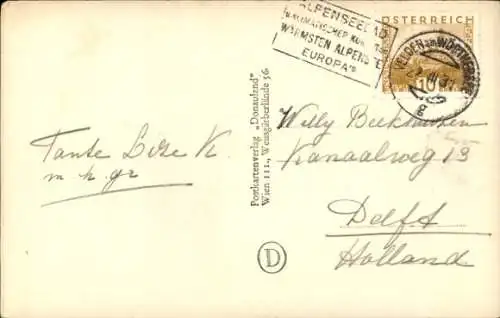 ALPENSEEBAD
KLIMATISCHER KURORT
WÄRMSTEN ALPENSEE
EUROPAS
ÖSTERREICH
VELDEN am WÖRTHERSEE
10
Tante Lize K.
m. h. gr
Postkartenverlag „Donauland"
Wien III., Weissgärberlände 56
D
Willy Beekhuizen
Kanaalweg 13
Delft
Holland